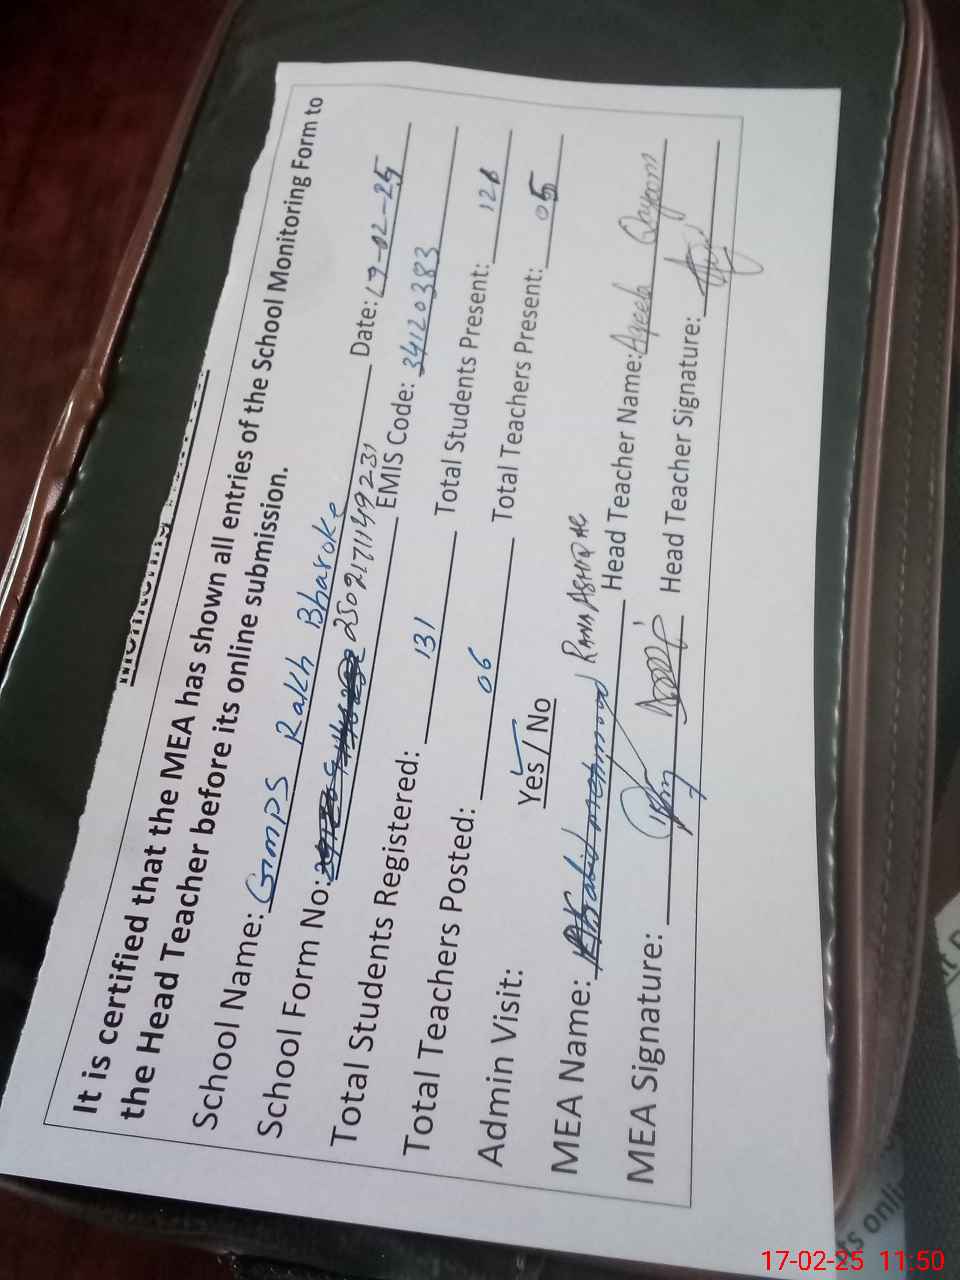 It is certified that the MEA has shown all entries of the School Monitoring Form to
the Head Teacher before its online submission.
School Name: GMPS Rakh Bharoke
School Form No: 2502171149231 Date: 17-02-25
Total Students Registered: 131 EMIS Code: 34120383
Total Teachers Posted: 06 Total Students Present: 121
Admin Visit: Yes / No Total Teachers Present: 05
MEA Name: RANA ASHFAQ Head Teacher Name: Aqeela Qayoom
MEA Signature: Head Teacher Signature:
17-02-25 11:50